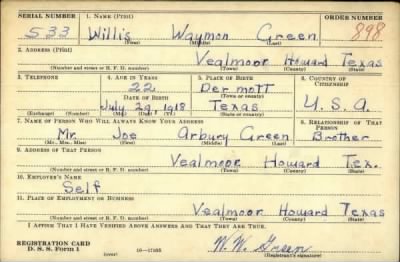 SERIAL NUMBER 1. NAME (Print) ORDER NUMBER
533 Willis Waymon Green 898
(First) (Middle) (Last)
2. ADDRESS (Print)
Vealmoor Howard Texas
(Number and street or R. F. D. number) (Town) (County) (State)
3. TELEPHONE 4. AGE IN YEARS 5. PLACE OF BIRTH 6. COUNTRY OF CITIZENSHIP
22 Dermott
DATE OF BIRTH (Town or county)
July 29, 1918 Texas U.S.A.
(Exchange) (Number) (Mo.) (Day) (Yr.) (State or country)
7. NAME OF PERSON WHO WILL ALWAYS KNOW YOUR ADDRESS 8. RELATIONSHIP OF THAT PERSON
Mr. Joe Arbury Green Brother
(Mr., Mrs., Miss) (First) (Middle) (Last)
9. ADDRESS OF THAT PERSON
Vealmoor Howard Tex.
(Number and street or R. F. D. number) (Town) (County) (State)
10. EMPLOYER'S NAME
Self
11. PLACE OF EMPLOYMENT OR BUSINESS
Vealmoor Howard Texas
(Number and street or R. F. D. number) (Town) (County) (State)
I AFFIRM THAT I HAVE VERIFIED ABOVE ANSWERS AND THAT THEY ARE TRUE.
REGISTRATION CARD
D. S. S. Form 1 (over) W. W. Green
(Registrant's signature)